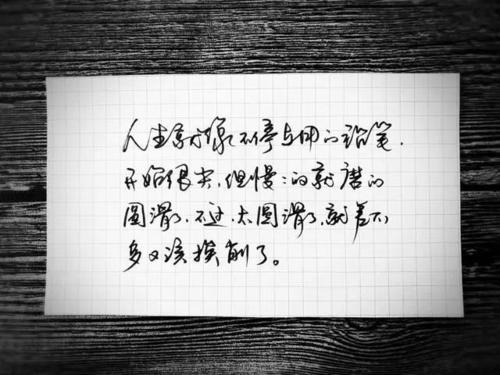 人生就像不停在用的铅笔，
开始很尖，但慢慢的就磨的
圆滑了，不过，太圆滑了，就差不
多又该挨削了。